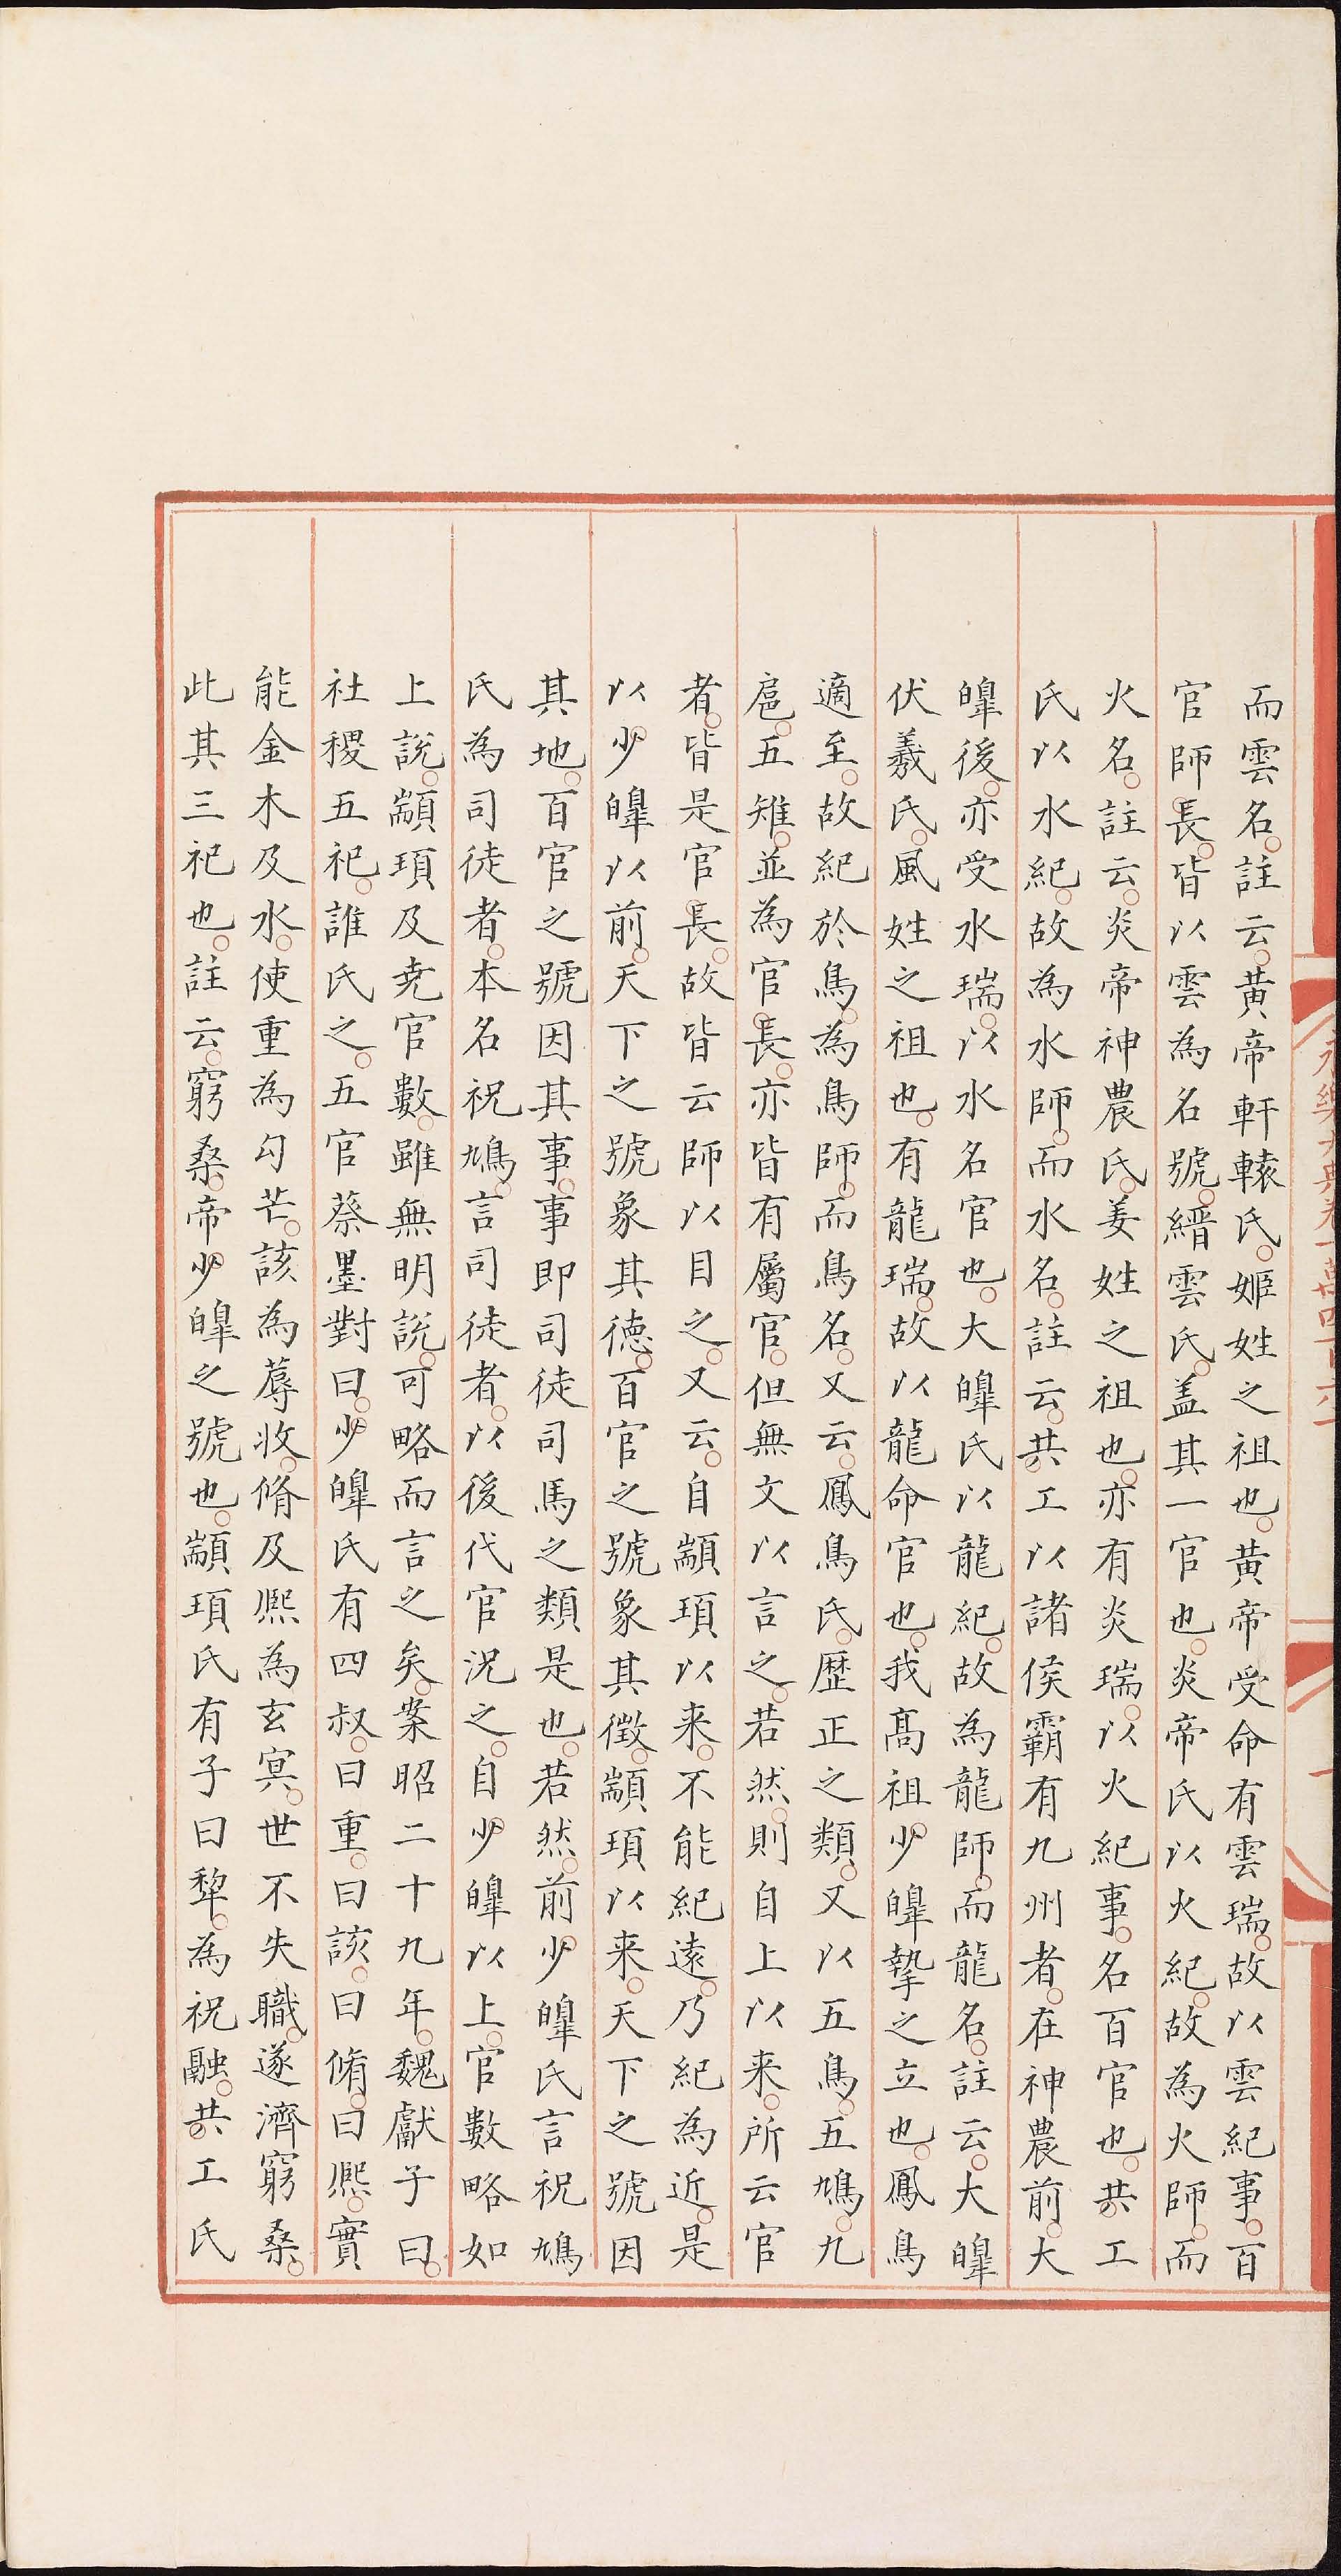 永樂大典卷一萬四百六十
而雲名註云黃帝軒轅氏姬姓之祖也黃帝受命有雲瑞故以雲紀事百
官師長皆以雲為名號縉雲氏盖其一官也炎帝氏以火紀故為火師而
火名註云炎帝神農氏姜姓之祖也亦有炎瑞以火紀事名百官也共工
氏以水紀故為水師而水名註云共工以諸侯霸有九州者在神農前大
皥後亦受水瑞以水名官也大皥氏以龍紀故為龍師而龍名註云大皥
伏羲氏風姓之祖也有龍瑞故以龍命官也我髙祖少皥摯之立也鳳鳥
適至故紀於鳥為鳥師而鳥名又云鳳鳥氏歷正之類又以五鳥五鳩九
扈五雉並為官長亦皆有屬官但無文以言之若然則自上以来所云官
者皆是官長故皆云師以目之又云自顓頊以来不能紀遠乃紀為近是
以少皥以前天下之號象其徳百官之號象其徵顓頊以来天下之號因
其地百官之號因其事事即司徒司馬之類是也若然前少皥氏言祝鳩
氏為司徒者本名祝鳩言司徒者以後代官況之自少皥以上官數略如
上說顓頊及尭官數雖無明說可略而言之矣案昭二十九年魏獻子曰
社稷五祀誰氏之五官蔡墨對曰少皥氏有四叔曰重曰該曰脩曰熈實
能金木及水使重為勾芒該為蓐收脩及熈為玄冥世不失職遂濟窮桑
此其三祀也註云窮桑帝少皥之號也顓頊氏有子曰犂為祝融共工氏